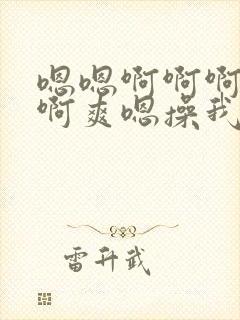 嗯嗯啊啊啊
啊爽嗯操我
雷升武